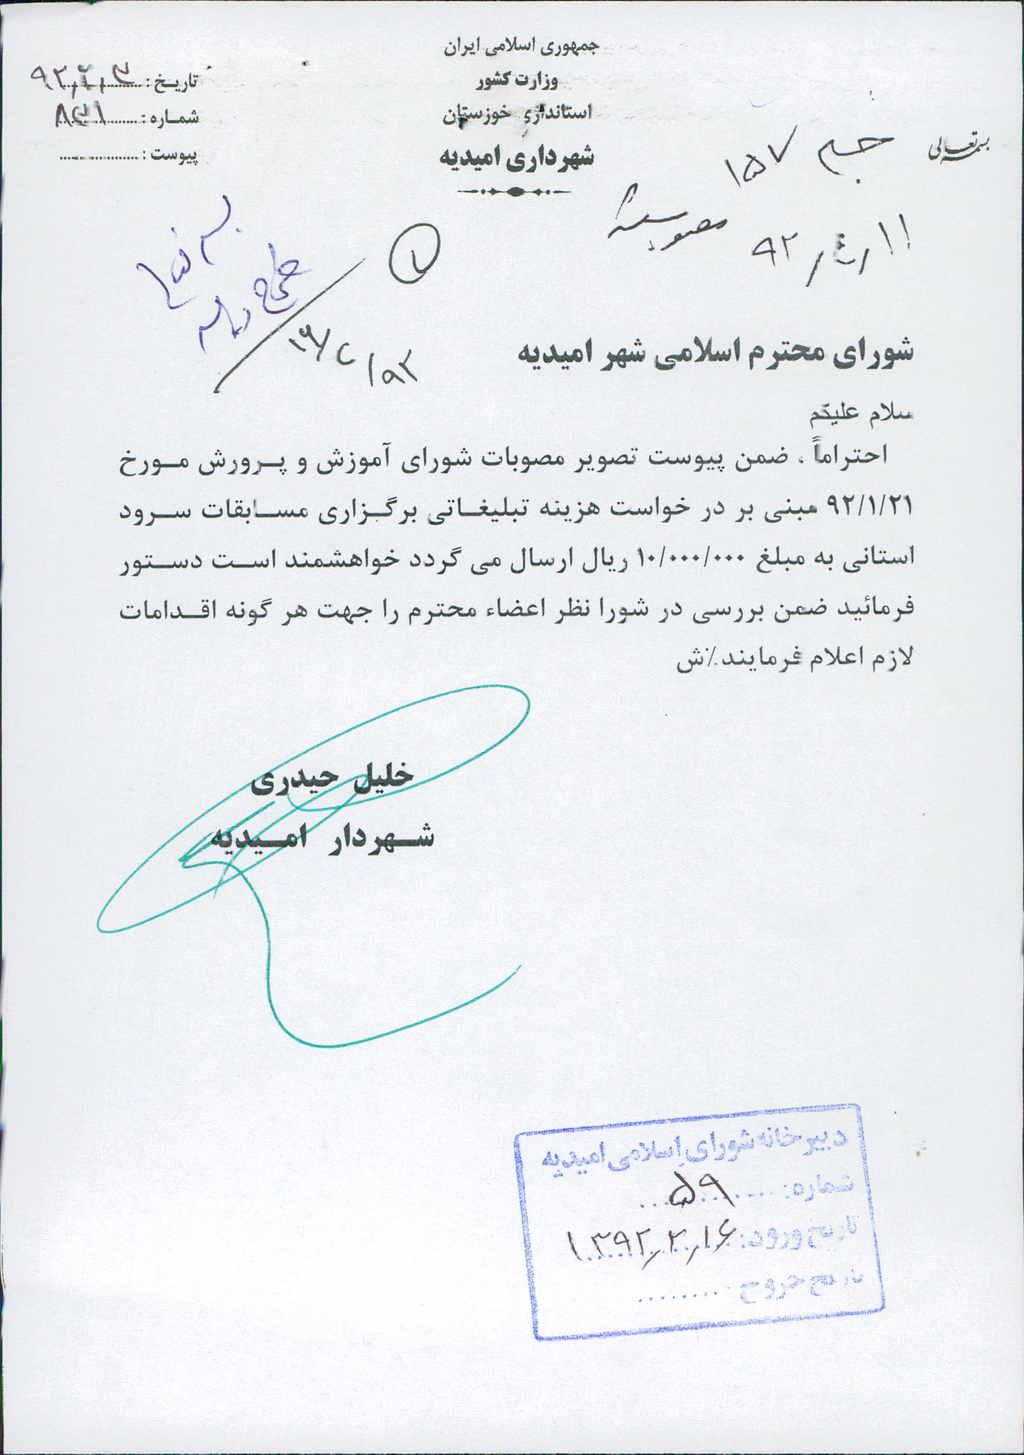 جمهوری اسلامی ایران
وزارت کشور
استانداری خوزستان
شهرداری امیدیه
تاریخ : ۹۲٫۲٫۳
شماره : ۸۳۱
پیوست :
بسمه تعالی
۱۵۷
مصوب
۹۲
۱۱
۱۶/۲/۹۲
شورای محترم اسلامی شهر امیدیه
سلام علیکم
احتراماً ، ضمن پیوست تصویر مصوبات شورای آموزش و پرورش مورخ
۹۲/۱/۲۱ مبنی بر در خواست هزینه تبلیغاتی برگزاری مسابقات سرود
استانی به مبلغ ۱۰/۰۰۰/۰۰۰ ریال ارسال می گردد خواهشمند است دستور
فرمائید ضمن بررسی در شورا نظر اعضاء محترم را جهت هر گونه اقدامات
لازم اعلام فرمایند./ش
خلیل حیدری
شهردار امیدیه
دبیرخانه شورای اسلامی امیدیه
شماره: ۵۹
تاریخ ورود: ۱۳۹۲٫۲٫۱۶
تاریخ خروج